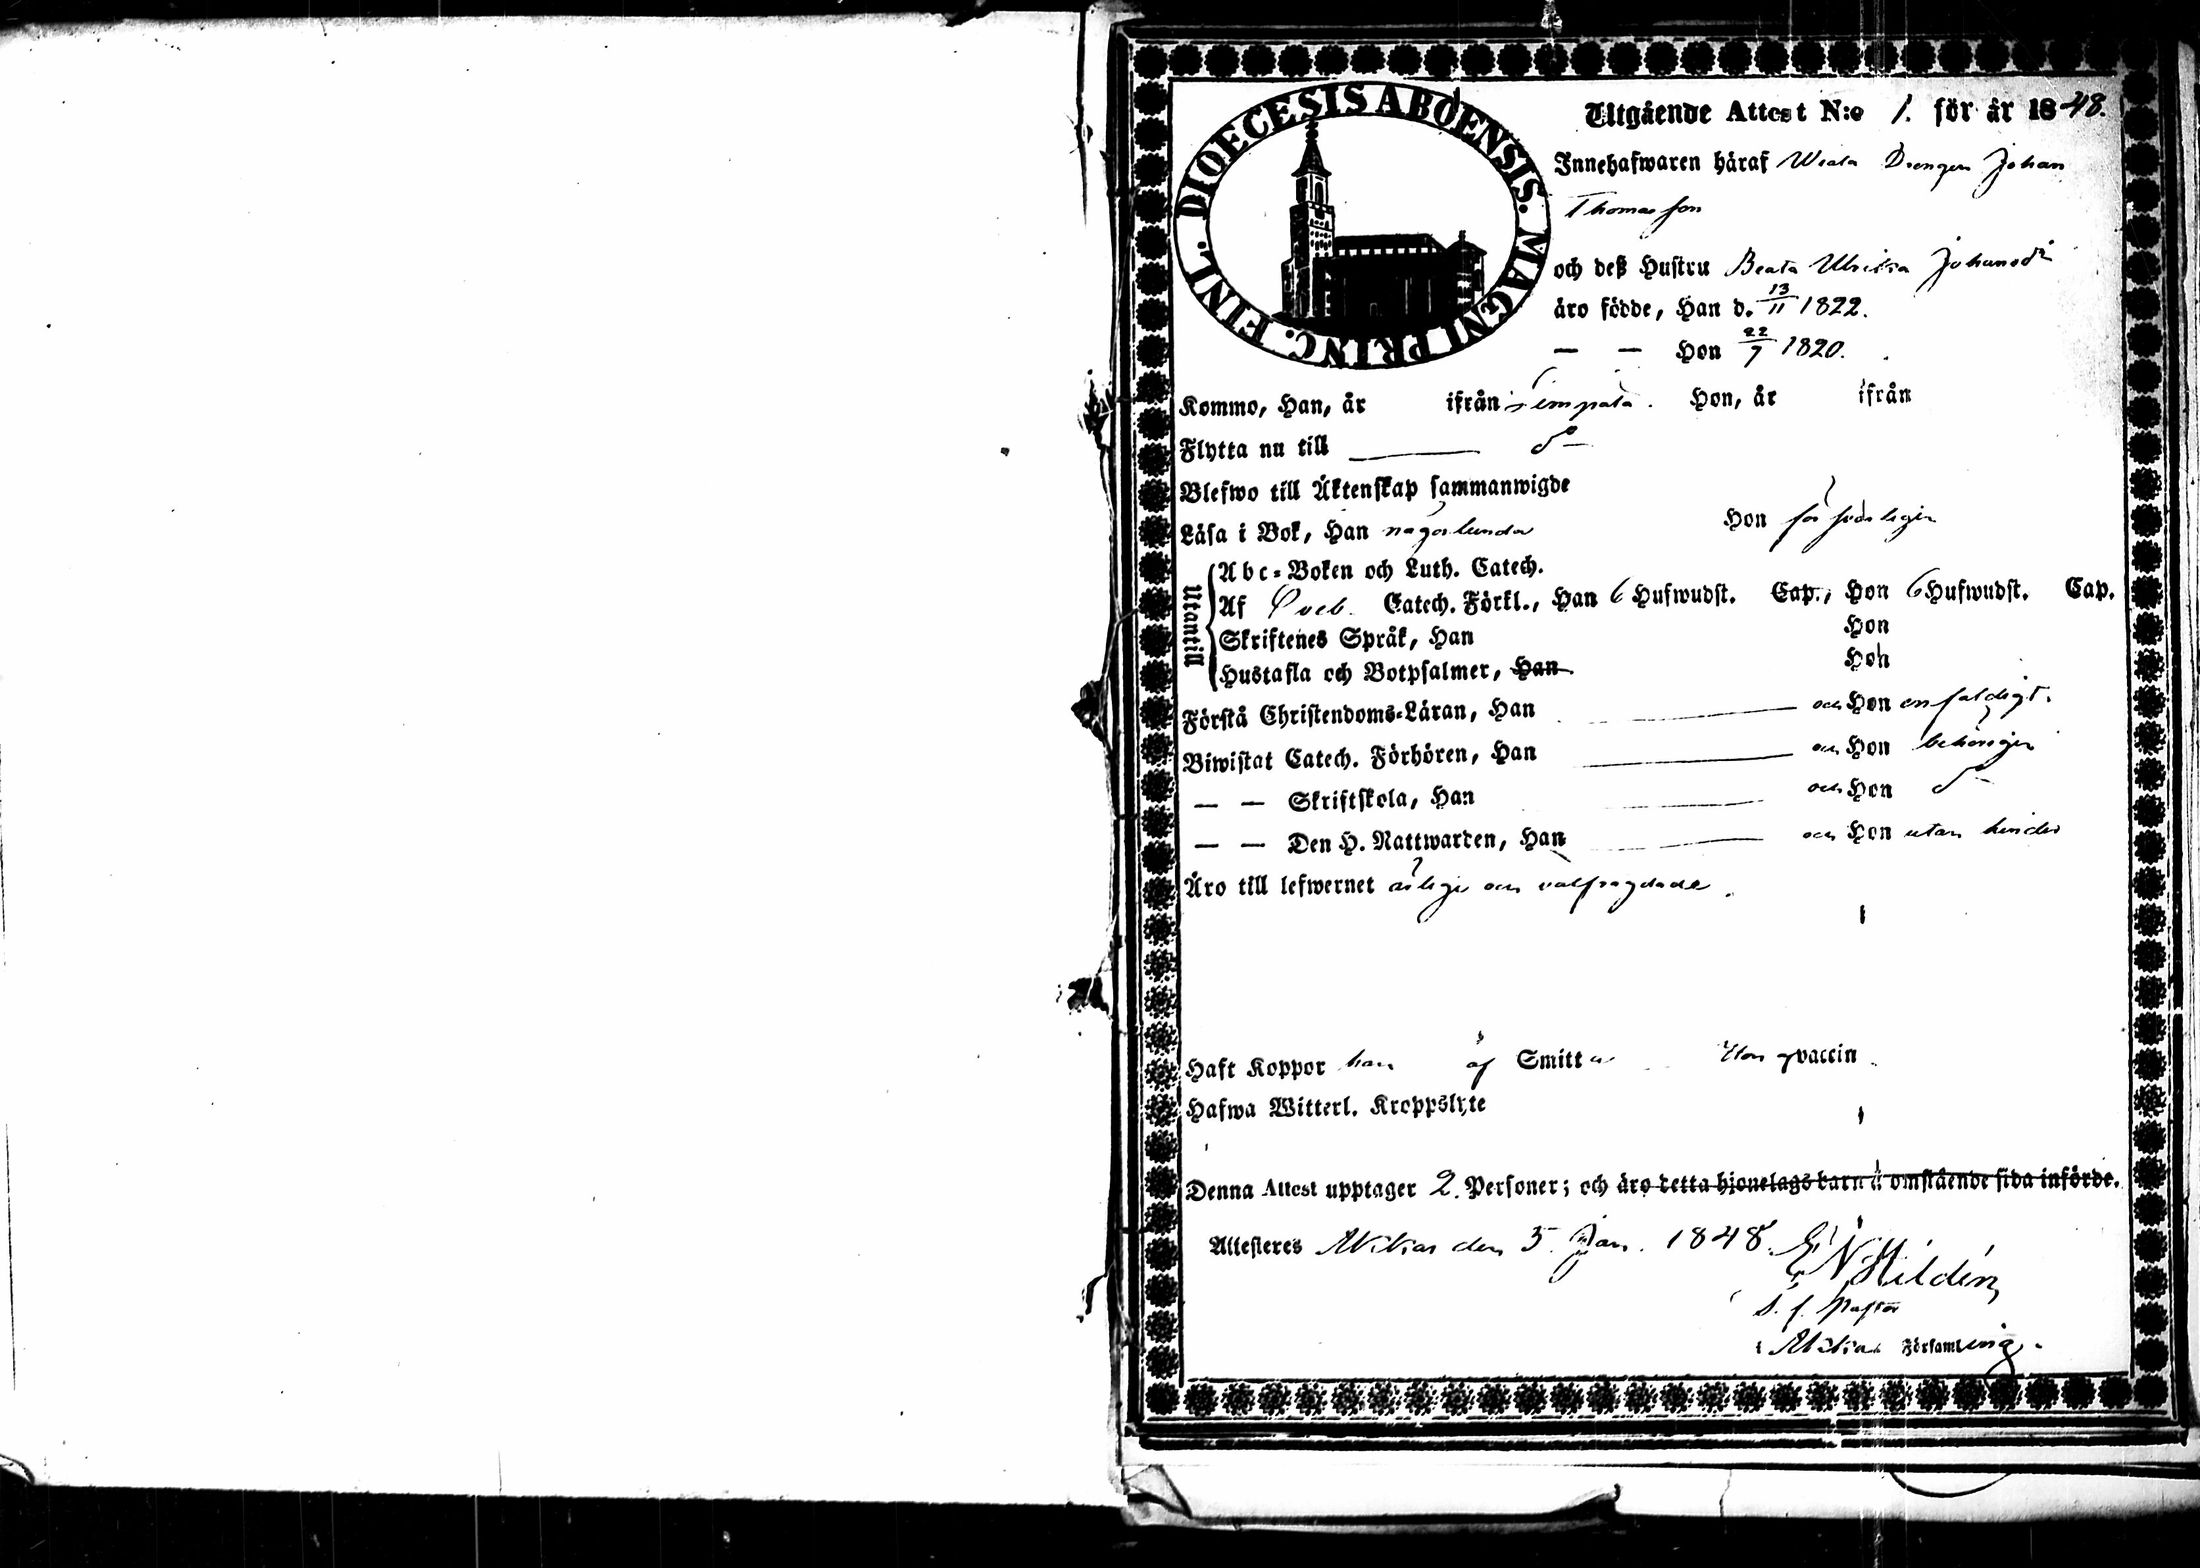 DIOECESIS ABOENSIS. MAGNI PRINC. FINL.
Utgående Attest N:o 1. för år 1848.
Innehafwaren häraf Drengen Johan
Thomasson
och deß Hustru Beata Ulrika Johansdr
äro födde, Han d. 13/11 1822.
— — Hon 22/7 1820.
Kommo, Han, år ifrån Kimpala. Hon, år ifrån
Flytta nu till ——— do
Blefwo till Äktenskap sammanwigde
Läsa i Bok, Han någorlunda Hon försvarligen
Utantill
Abc-Boken och Luth. Catech.
Af Sveb. Catech. Förkl., Han 6 Hufwudst. Cap., Hon 6 Hufwudst. Cap.
Skriftenes Språk, Han Hon
Hustafla och Botpsalmer, Han Hon
Förstå Christendoms-Läran, Han ——— och Hon enfaldigt.
Biwistat Catech. Förhören, Han ——— och Hon behörigen
— — Skriftskola, Han ——— och Hon do
— — Den H. Nattwarden, Han ——— och Hon utan hinder
Äro till lefwernet ärlige och välfrägdade.
Haft Koppor han af Smitta Hon vaccin
Hafwa Witterl. Kroppslyte
Denna Attest upptager 2. Personer; och äro detta hjonelags barn å omstående sida införde.
Attesteres den 5. Jan. 1848. Hildén
Pastor
i Församling.